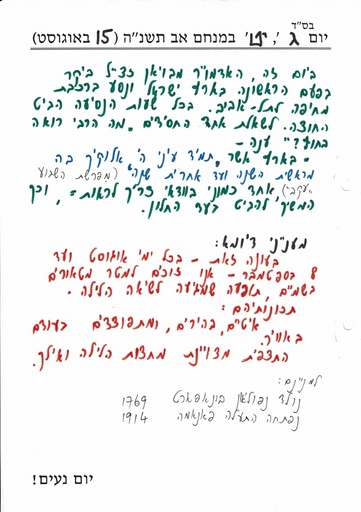 בס"ד
יום ג', י"ט' במנחם אב תשנ"ה (15 באוגוסט)
ביום זה, האדמו"ר מבויאן זצ"ל ביקר
בפעם הראשונה בארץ ישראל ונסע ברכבת
מחיפה לתל-אביב. בכל שעות הנסיעה הביט
החוצה. לשאלת אחד החסידים "מה הרבי רואה
בחוץ?" ענה -
- בארץ אשר "תמיד עיני ה' אלוקיך בה
מראשית השנה ועד אחרית שנה" (מפרשת השבוע
"עקב") אחד כמוני בוודאי צריך לראות", וכך
המשיך להביט בעד החלון.
מענייני דיומא:
בעונה זאת - בכל ימי אוגוסט ועד
8 בספטמבר - אנו זוכים למטר מטאורים
בשמים, תופעה שמגיעה לשיאה הלילה.
תכונותיהם:
איטיים, בהירים, ומתפוצצים בעודם
באוויר.
התצפית מצויינת מחצות הלילה ואילך.
למניינם:
נולד נפוליאון בונאפארט 1769
נפתחה התעלה פאנאמה 1914
יום נעים!